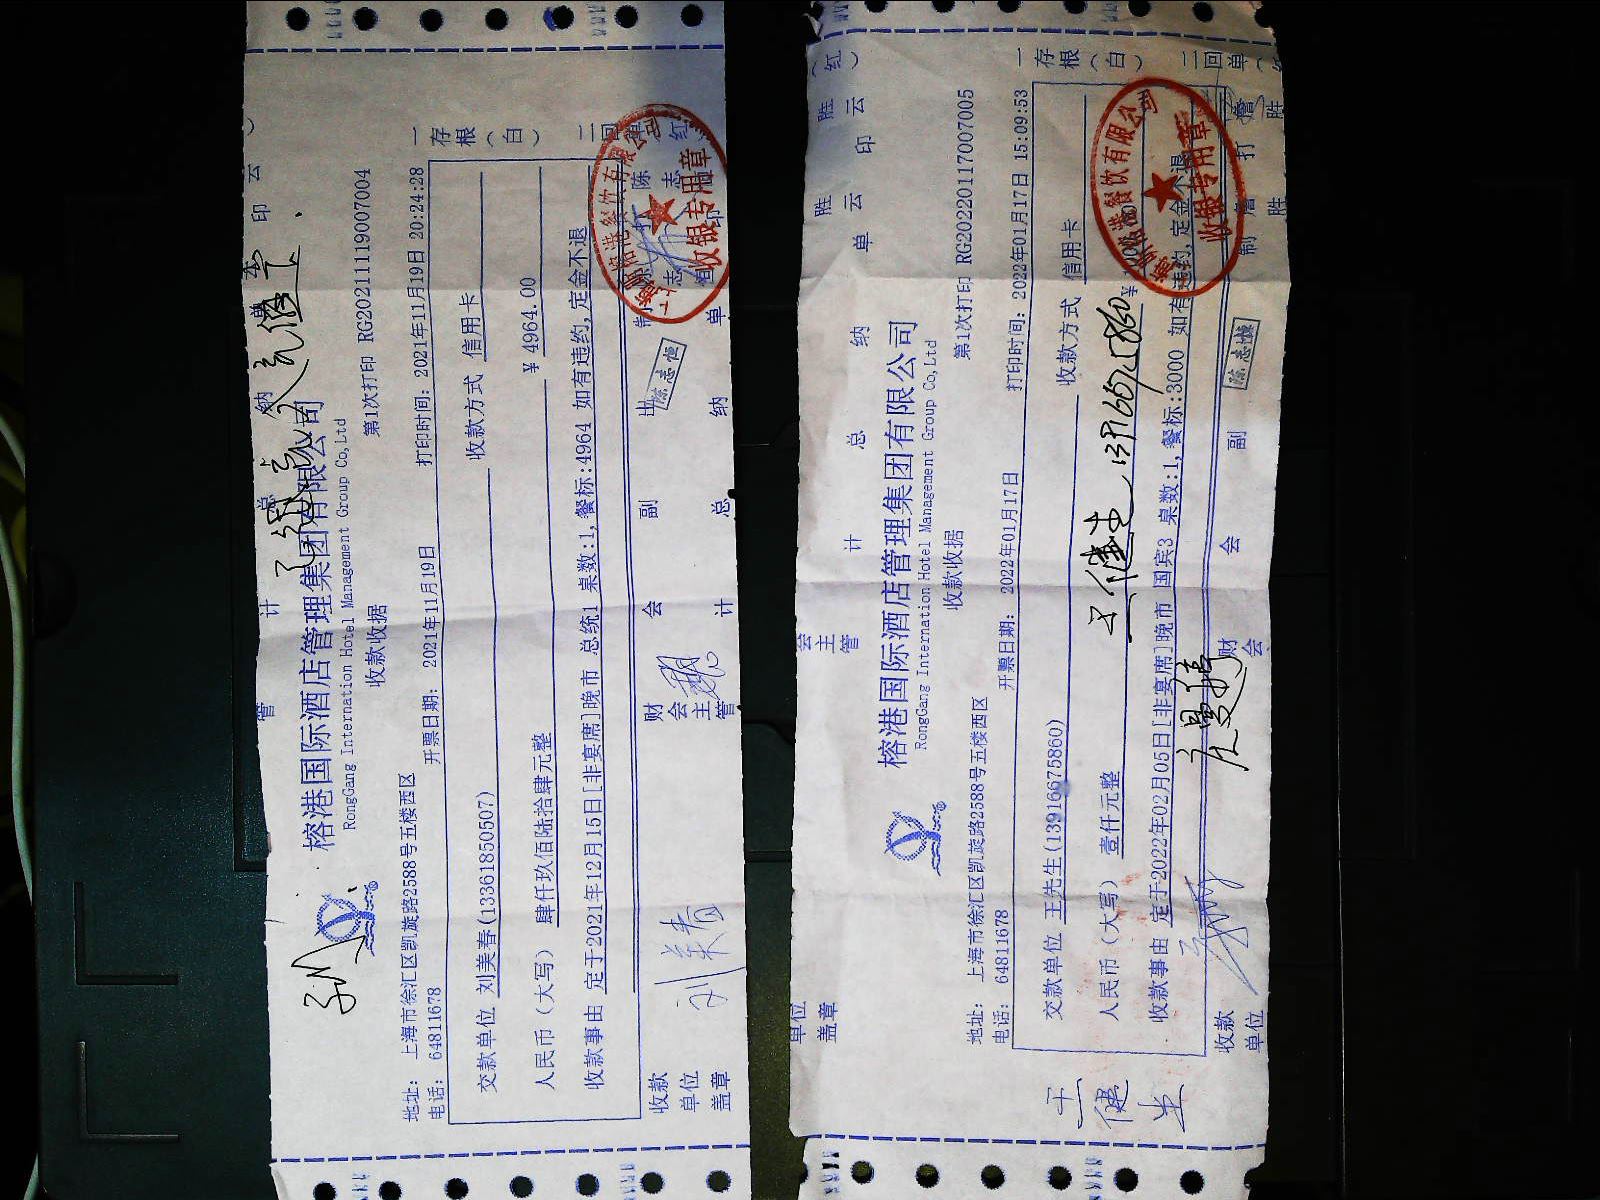 榕港国际酒店管理集团有限公司
RongGang International Hotel Management Group Co,Ltd
收款收据
第1次打印 RG20211119007004
地址: 上海市徐汇区凯旋路2588号五楼西区
电话: 64811678
开票日期: 2021年11月19日
打印时间: 2021年11月19日 20:24:28
交款单位 刘美春(13361850507)
收款方式 信用卡
人民币(大写) 肆仟玖佰陆拾肆元整
¥ 4964.00
收款事由 定于2021年12月15日[非宴席]晚市 总统1 桌数:1,餐标:4964 如有违约,定金不退
一存根(白)
收款单位盖章
财会主管
会计
副总
出纳
陈志恒
收银专用章
刘美春
榕港国际酒店管理集团有限公司
RongGang International Hotel Management Group Co,Ltd
收款收据
第1次打印 RG20220117007005
地址: 上海市徐汇区凯旋路2588号五楼西区
电话: 64811678
开票日期: 2022年01月17日
打印时间: 2022年01月17日 15:09:53
交款单位 王先生(13916675860)
收款方式 信用卡
人民币(大写) 壹仟元整
王健生 13916675860
收款事由 定于2022年02月05日[非宴席]晚市 国宾3 桌数:1,餐标:3000 如有违约,定金不退
一存根(白)
二回单(红)
收款单位
收银专用章